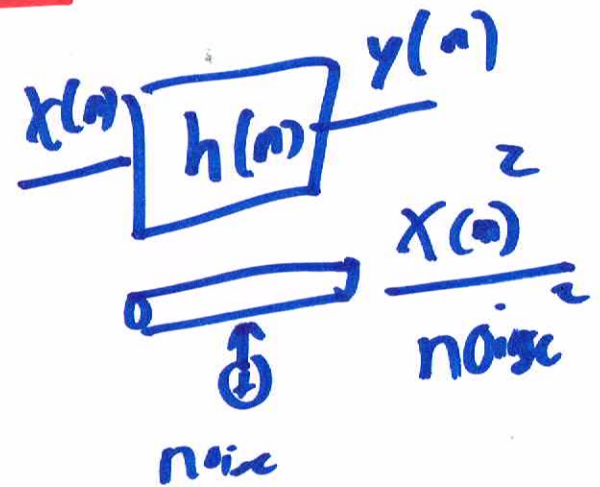 x(n) h(n) y(n)
X(n)²
noise²
noise